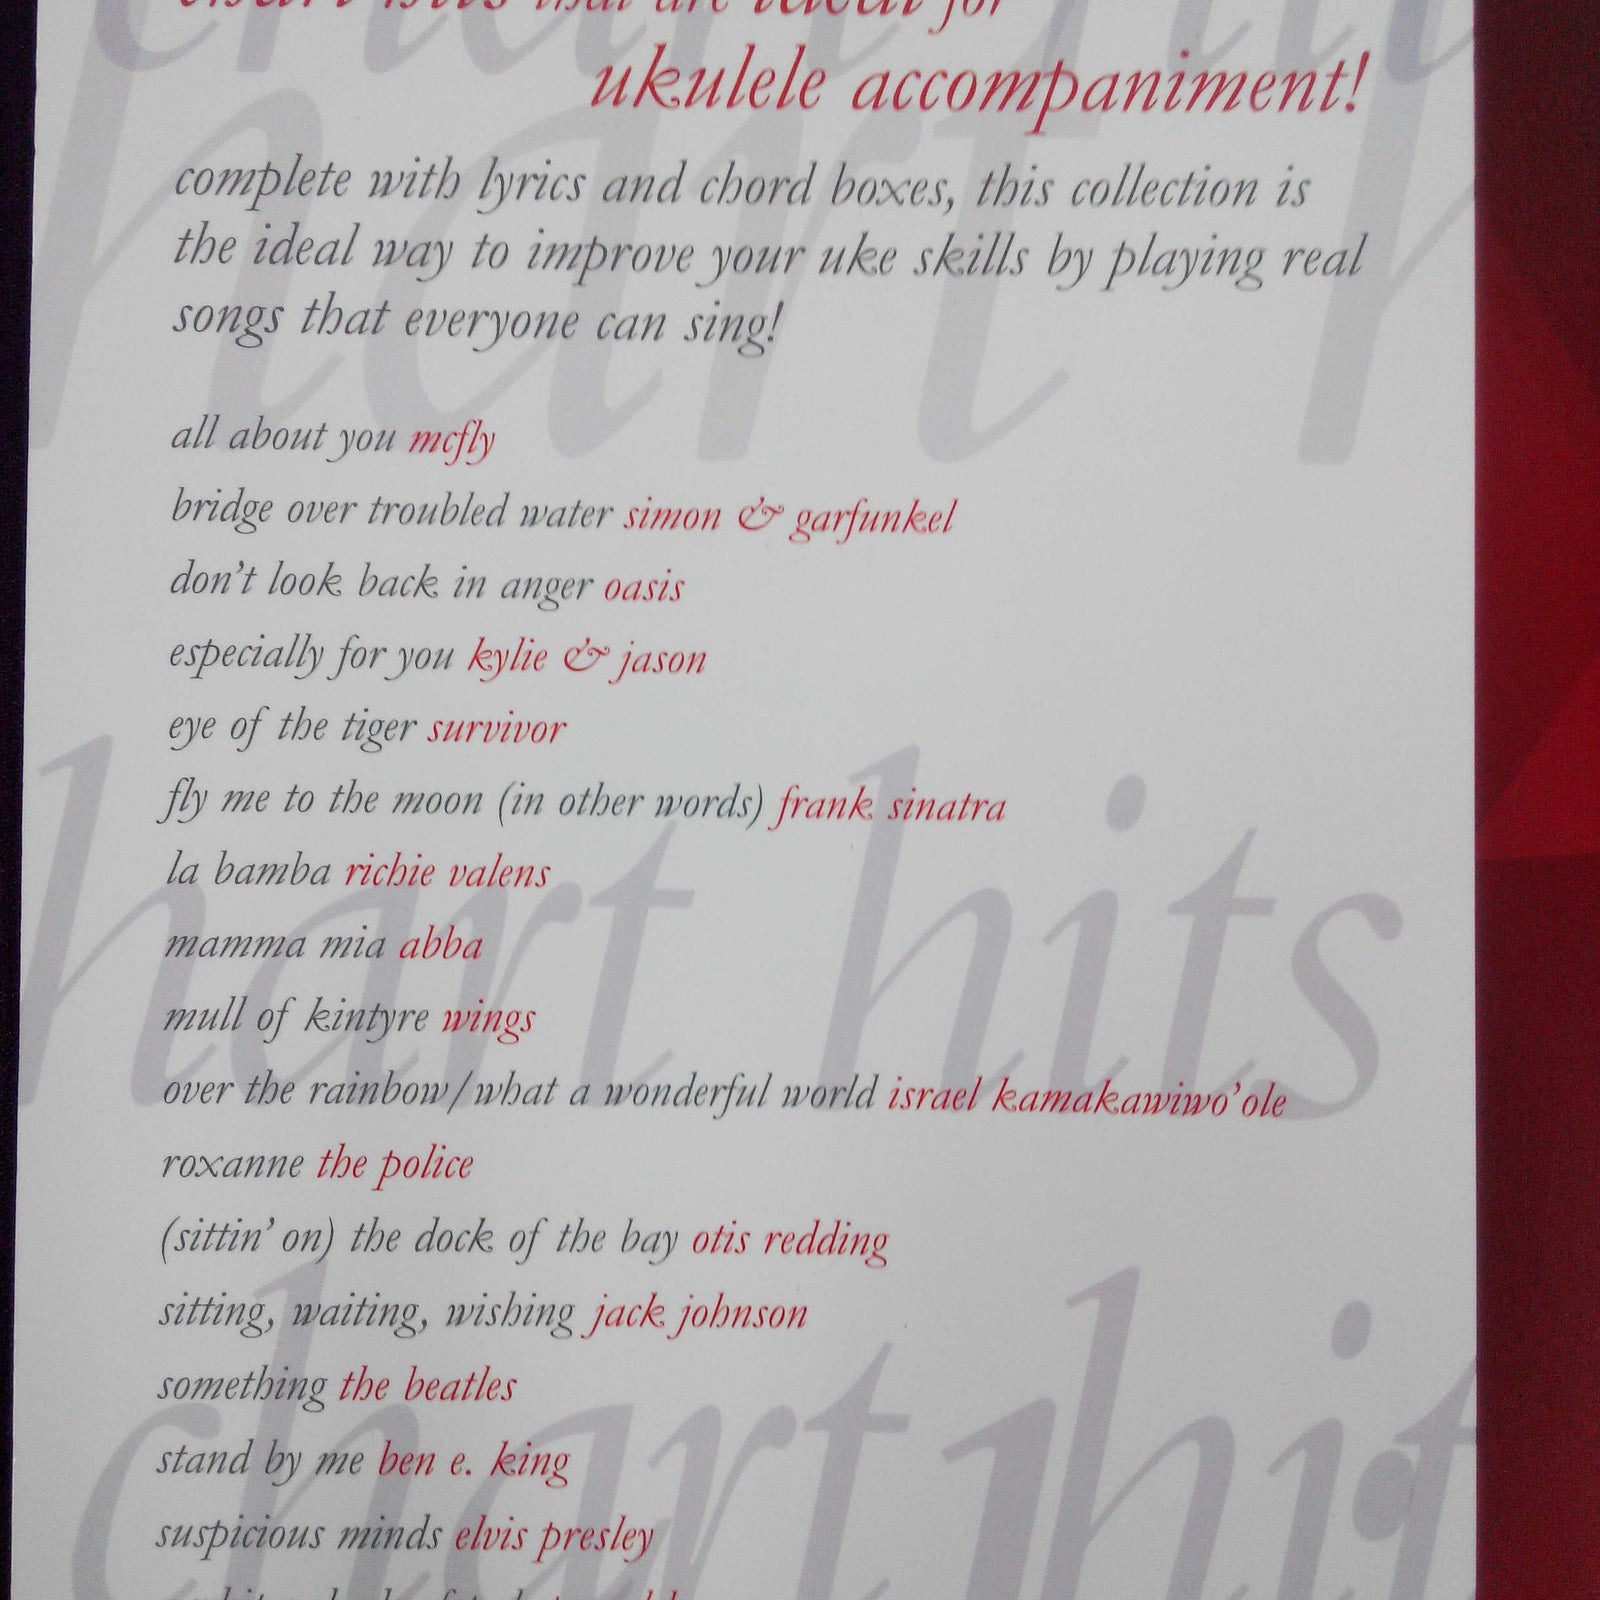 chart hits that are ideal for
ukulele accompaniment!
complete with lyrics and chord boxes, this collection is
the ideal way to improve your uke skills by playing real
songs that everyone can sing!
all about you mcfly
bridge over troubled water simon & garfunkel
don't look back in anger oasis
especially for you kylie & jason
eye of the tiger survivor
fly me to the moon (in other words) frank sinatra
la bamba richie valens
mamma mia abba
mull of kintyre wings
over the rainbow/what a wonderful world israel kamakawiwo'ole
roxanne the police
(sittin' on) the dock of the bay otis redding
sitting, waiting, wishing jack johnson
something the beatles
stand by me ben e. king
suspicious minds elvis presley
chart hits
chart hit